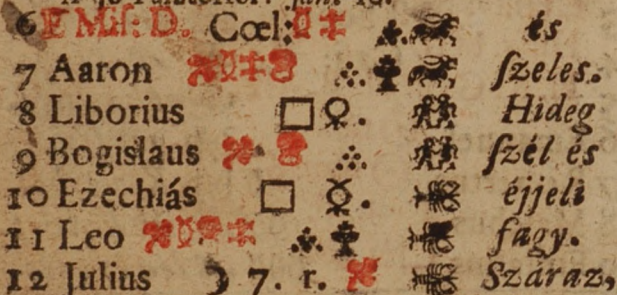 6 F Miſ: D. Cœl:
7 Aaron ſzeles.
8 Liborius □ ♀. Hideg
9 Bogislaus ſzél és
10 Ezechiás □ ☿. éjjeli
11 Leo fagy.
12 Julius ☽ 7. r. Száraz,